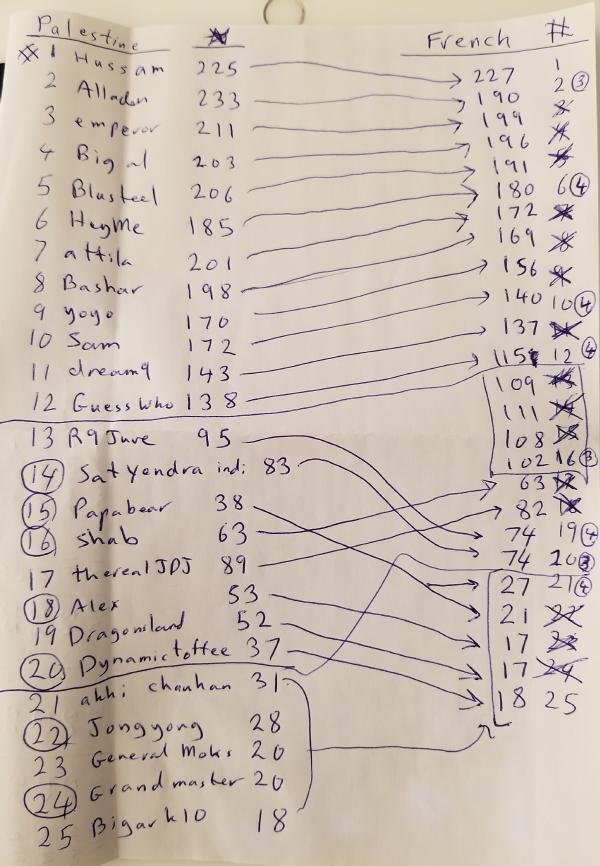 Palestine # French #
# 1 Hussam 225 227 1
2 Alladin 233 190 2 (3)
3 emperor 211 199 3
4 Big al 203 196 4
5 Blusteel 206 191 5
6 HeyMe 185 180 6 (4)
7 attila 201 172 7
8 Bashar 198 169 8
9 yoyo 170 156 9
10 Sam 172 140 10 (4)
11 dream9 143 137 11
12 Guess who 138 115 12 (4)
13 R9 June 95 109 13
14 Satyendra indi 83 111 14
15 Papabear 38 108 15
16 shab 63 102 16 (3)
17 therealJPJ 89 63 17
18 Alex 53 82 18
19 Dragonsland 52 74 19 (4)
20 Dynamictoffee 37 74 20 (3)
21 akhi chauhan 31 27 21 (4)
22 Jongyong 28 21 22
23 General Moks 20 17 23
24 Grandmaster 20 17 24
25 Bigark10 18 18 25